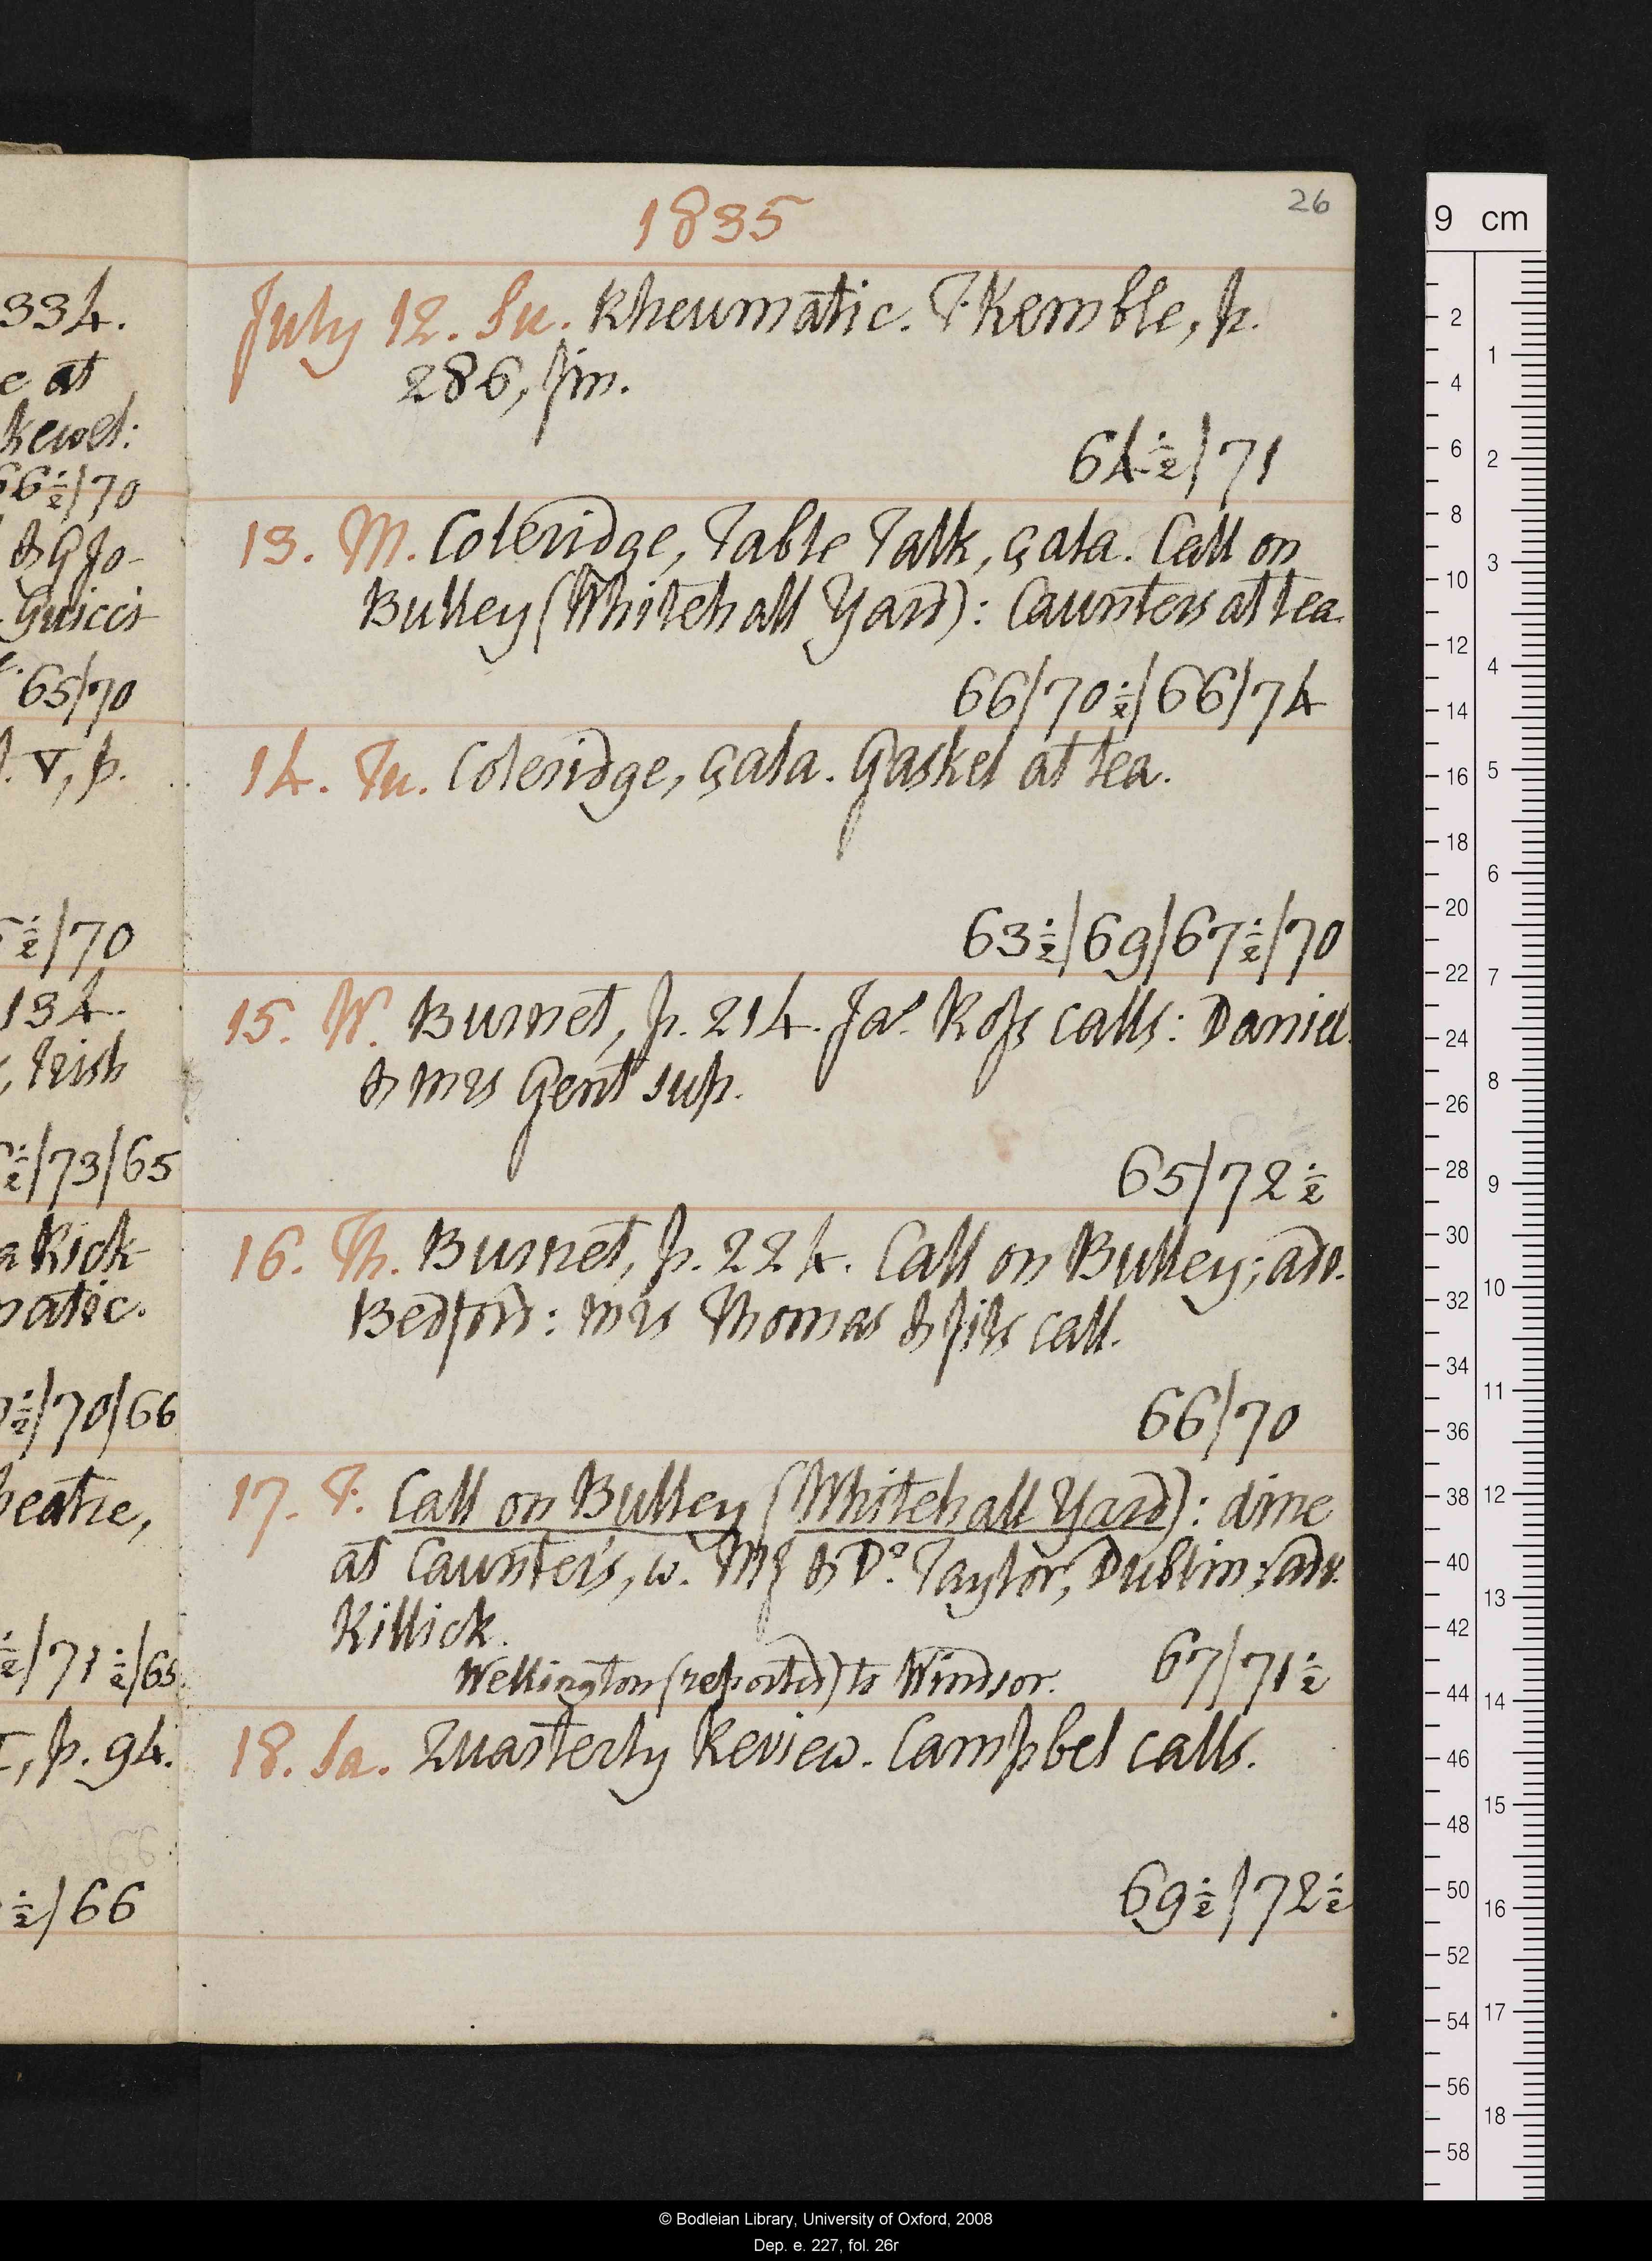 1835
26
July 12. Su. Rheumatic. F. Kemble, p.
286, fin.
64½/71
13. M. Coleridge, Table Talk, çala. Call on
Bulley (Whitehall Yard): Caunters at tea.
66/70½/66/74
14. Tu. Coleridge, çala. Gaskel at tea.
63½/69/67½/70
15. W. Burnet, p. 214. Jas Ross calls: Daniel
& Mrs Gent sup.
65/72½
16. Th. Burnet, p. 224. Call on Bulley; adv.
Bedford: Mrs Thomas & fils call.
66/70
17. F. Call on Bulley (Whitehall Yard): dine
at Caunter's, w. Mg & Do. Taylor, Dublin; adv.
Killick.
Wellington (reported) to Windsor. 67/71½
18. Sa. Quarterly Review. Campbel calls.
69½/72½
334.
e at
kewel:
66½/70
& G Jo-
Guiccis
65/70
. V, p.
½/70
134.
, Irish
½/73/65
a Rick-
matic.
½/70/66
heatre,
½/71½/65
, p. 94.
½/66
9 cm
2
4
6
8
10
12
14
16
18
20
22
24
26
28
30
32
34
36
38
40
42
44
46
48
50
52
54
56
58
1
2
3
4
5
6
7
8
9
10
11
12
13
14
15
16
17
18
© Bodleian Library, University of Oxford, 2008
Dep. e. 227, fol. 26r